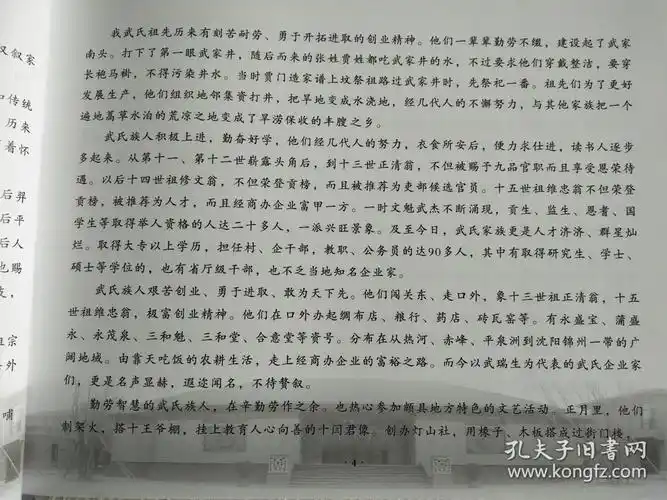 又叙家
和传统
历来
着怀
后羿
后平
后人
也赐
支，
祖宗
县外
啸
我武氏祖先历来有刻苦耐劳、勇于开拓进取的创业精神。他们一辈辈勤劳不缀，建设起了武家
南头。打下了第一眼武家井，随后而来的张姓贾姓都吃武家井的水，不过要求他们穿戴整洁，要穿
长袍马褂，不得污染井水。当时贾门造家谱上坟祭祖路过武家井时，先祭祀一番。祖先们为了更好
发展生产，他们组织地邻集资打井，把旱地变成水浇地，经几代人的不懈努力，与其他家族把一个
遍地蒿草水泊的荒凉之地变成了旱涝保收的丰膛之乡。
武氏族人积极上进，勤奋好学，他们经几代人的努力，衣食所安后，便力求仕进，读书人逐步
多起来。从第十一、第十二世崭露头角后，到十三世正清翁，不但被赐予九品官职而且享受恩荣待
遇。以后十四世祖修文翁，不但荣登贡榜，而且被推荐为吏部候选官员。十五世祖维忠翁不但荣登
贡榜，被推荐为人才，而且经商办企业富甲一方。一时文魁武杰不断涌现，贡生、监生、恩耆、国
学生等取得举人资格的人达二十多人，一派兴旺景象。及至今日，武氏家族更是人才济济、群星灿
烂。取得大专以上学历，担任村、企干部，教职、公务员的达90多人，其中有取得研究生、学士、
硕士等学位的，也有省厅级干部，也不乏当地知名企业家。
武氏族人艰苦创业、勇于进取、敢为天下先。他们闯关东、走口外，象十三世祖正清翁，十五
世祖维忠翁，极富创业精神。他们在口外办起绸布店、粮行、药店、砖瓦窑等。有永盛宝、蒲盛
永、永茂泉、三和魁、三和堂、合意堂等资号。分布在从热河、赤峰、平泉洲到沈阳锦州一带的广
阔地域。由靠天吃饭的农耕生活，走上经商办企业的富裕之路。而今以武瑞生为代表的武氏企业家
们，更是名声显赫，遐迩闻名，不待赘叙。
勤劳智慧的武氏族人，在辛勤劳作之余。也热心参加颇具地方特色的文艺活动。正月里，他们
制架火，搭十王爷棚，挂上教育人心向善的十闫君像。创办灯山社，用椽子、木板搭成过街门楼，
·4·
孔夫子旧书网
www.kongfz.com